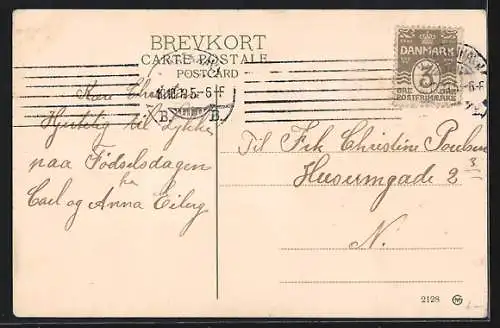 BREVKORT
CARTE POSTALE
POSTCARD
DANMARK
3
ØRE
POSTFRIMÆRKE
5-6 F
B. B.
Kære
Hjertelig til Lykke
paa Fødselsdagen
fra
Carl og Anna Eiberg
Til Frk Christine Poulsen
Husumgade 2 3
N.
2128